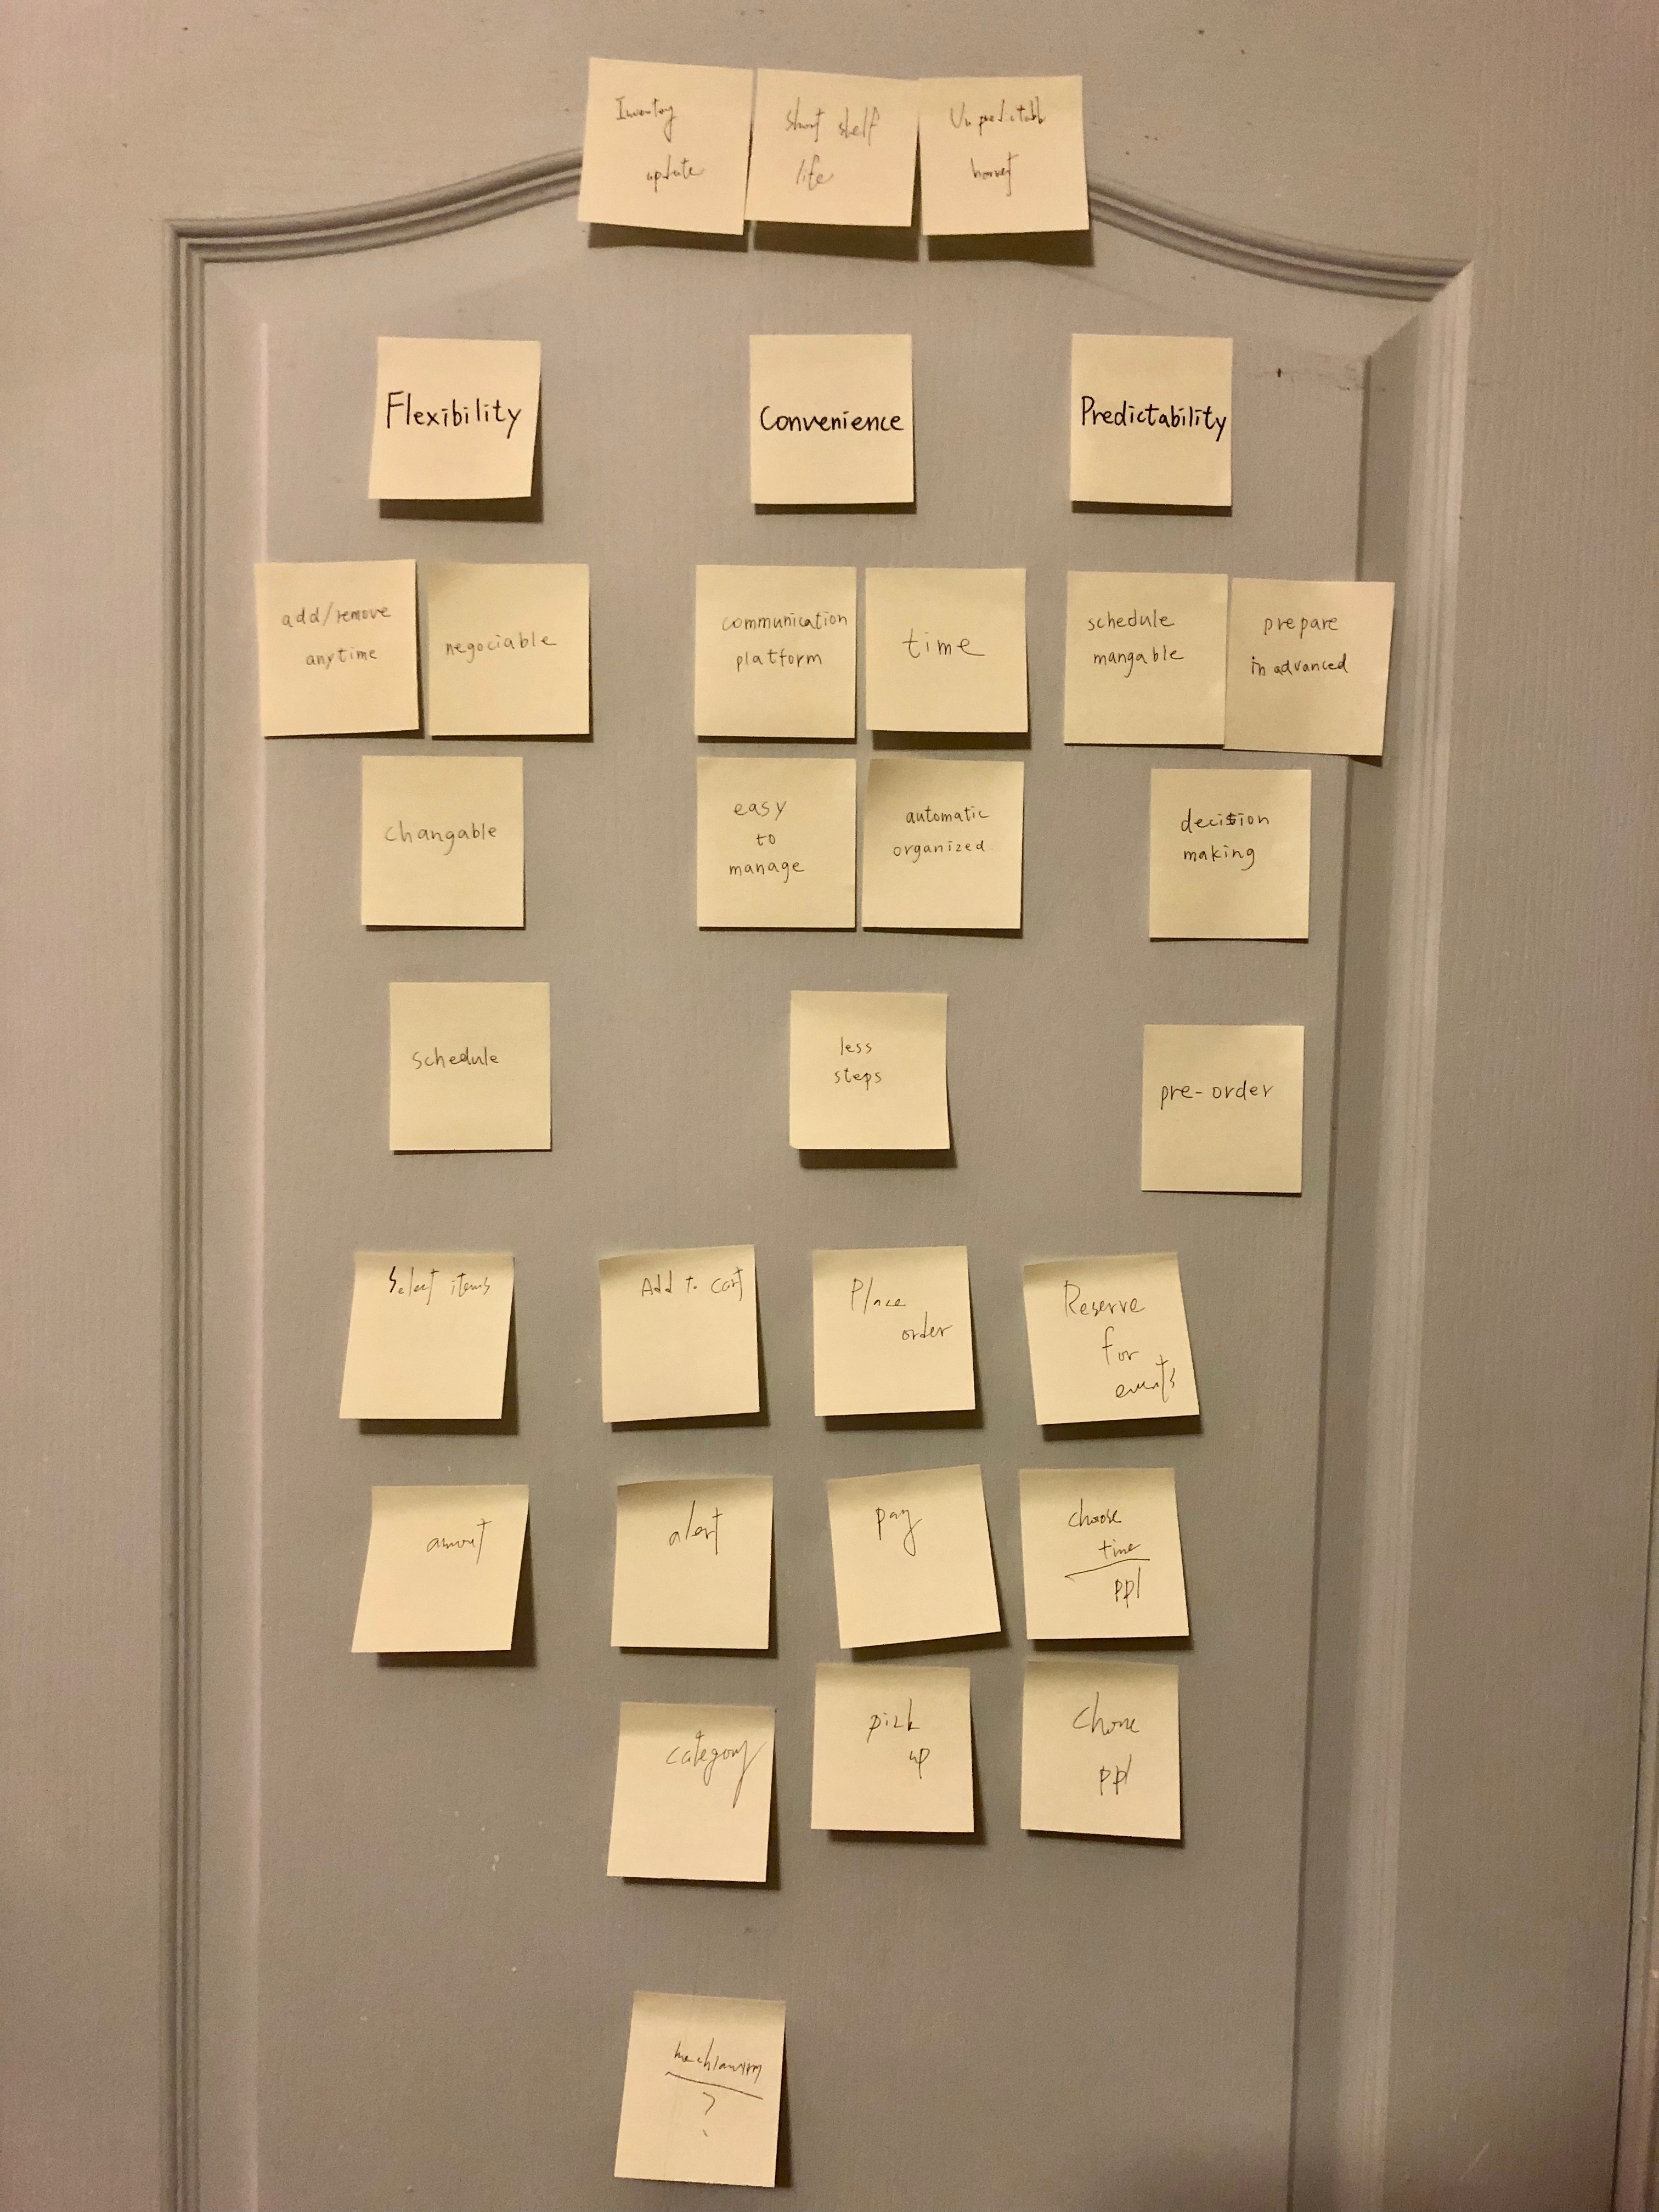 Inventory
update
short shelf
life
Unpredictable
harvest
Flexibility
Convenience
Predictability
add/remove
anytime
negociable
communication
platform
time
schedule
mangable
prepare
in advanced
changable
easy
to
manage
automatic
organized
decision
making
schedule
less
steps
pre-order
Select items
Add to cart
Place
order
Reserve
for
events
amout
alert
pay
choose
time
ppl
category
pick
up
Choose
ppl
?